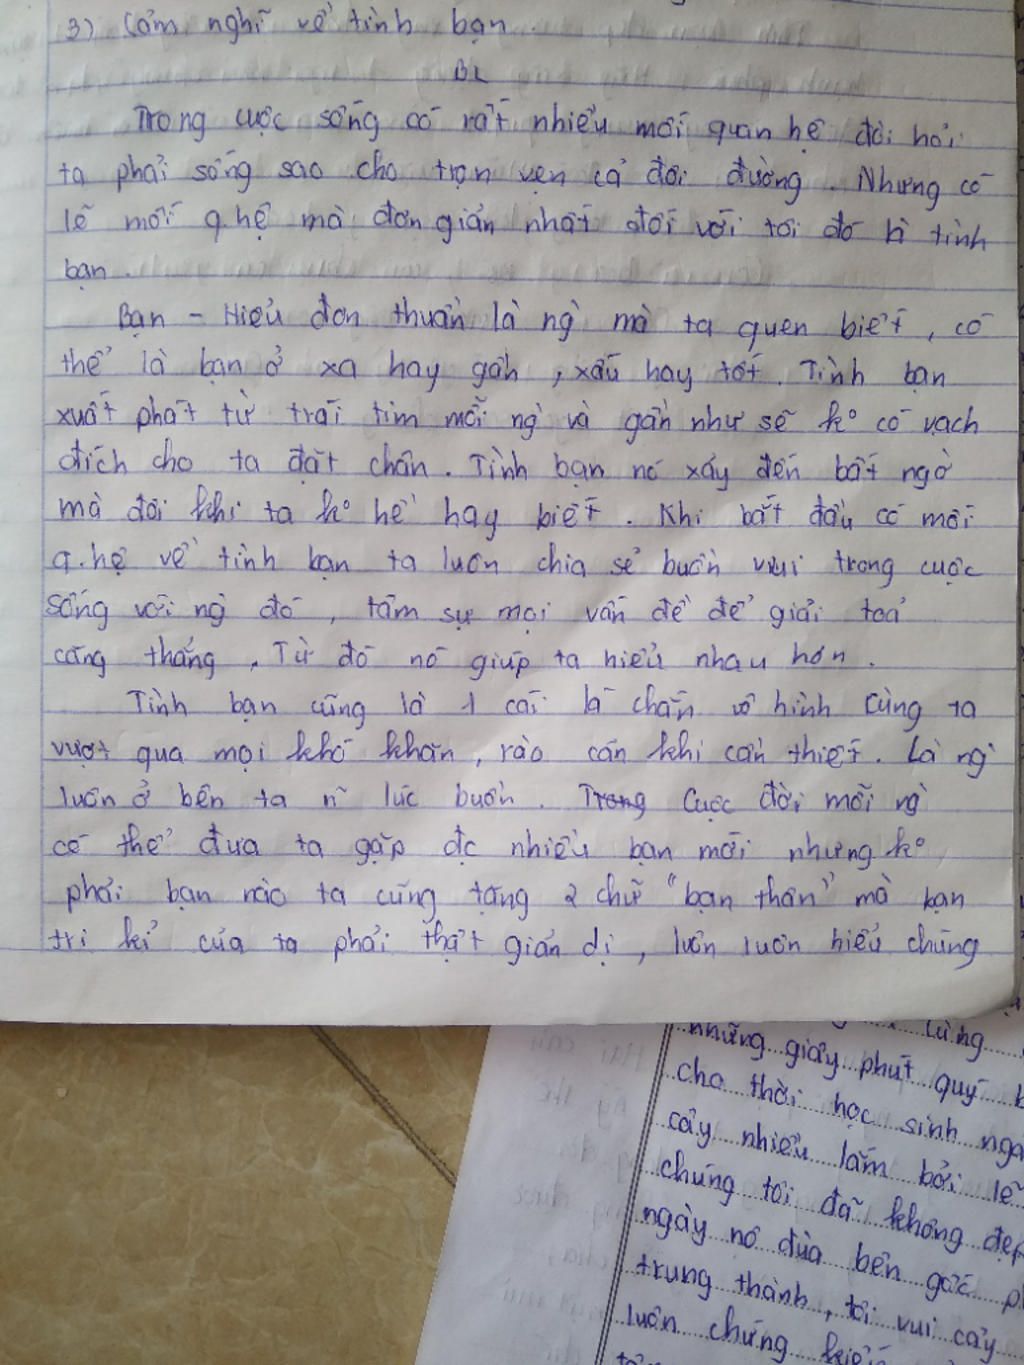 3) Cảm nghĩ về tình bạn.
BL
Trong cuộc sống có rất nhiều mối quan hệ đòi hỏi
ta phải sống sao cho trọn vẹn cả đôi đường. Nhưng có
lẽ mối q.hệ mà đơn giản nhất đối với tôi đó là tình
bạn.
Bạn - Hiểu đơn thuần là ng` mà ta quen biết, có
thể là bạn ở xa hay gần, xấu hay tốt. Tình bạn
xuất phát từ trái tim mỗi ng` và gần như sẽ ko có vạch
đích cho ta đặt chân. Tình bạn nó xảy đến bất ngờ
mà đôi khi ta ko hề hay biết. Khi bắt đầu có mối
q.hệ về tình bạn ta luôn chia sẻ buồn vui trong cuộc
sống với ng` đó, tâm sự mọi vấn đề để giải toả
căng thẳng. Từ đó nó giúp ta hiểu nhau hơn.
Tình bạn cũng là 1 cái lá chắn vô hình cùng ta
vượt qua mọi khó khăn, rào cản khi cần thiết. Là ng`
luôn ở bên ta lúc buồn. Trong Cuộc đời mỗi ng`
có thể đưa ta gặp đc nhiều bạn mới nhưng ko
phải bạn nào ta cũng tặng 2 chữ "bạn thân" mà bạn
tri kỉ của ta phải thật giản dị, luôn luôn hiểu chúng
từng
những giây phút quý
cho thời học sinh
cây nhiều lắm bởi lẽ
chúng tôi đã không
ngày nô đùa bên gốc
trung thành, tôi vui cây
luôn chứng